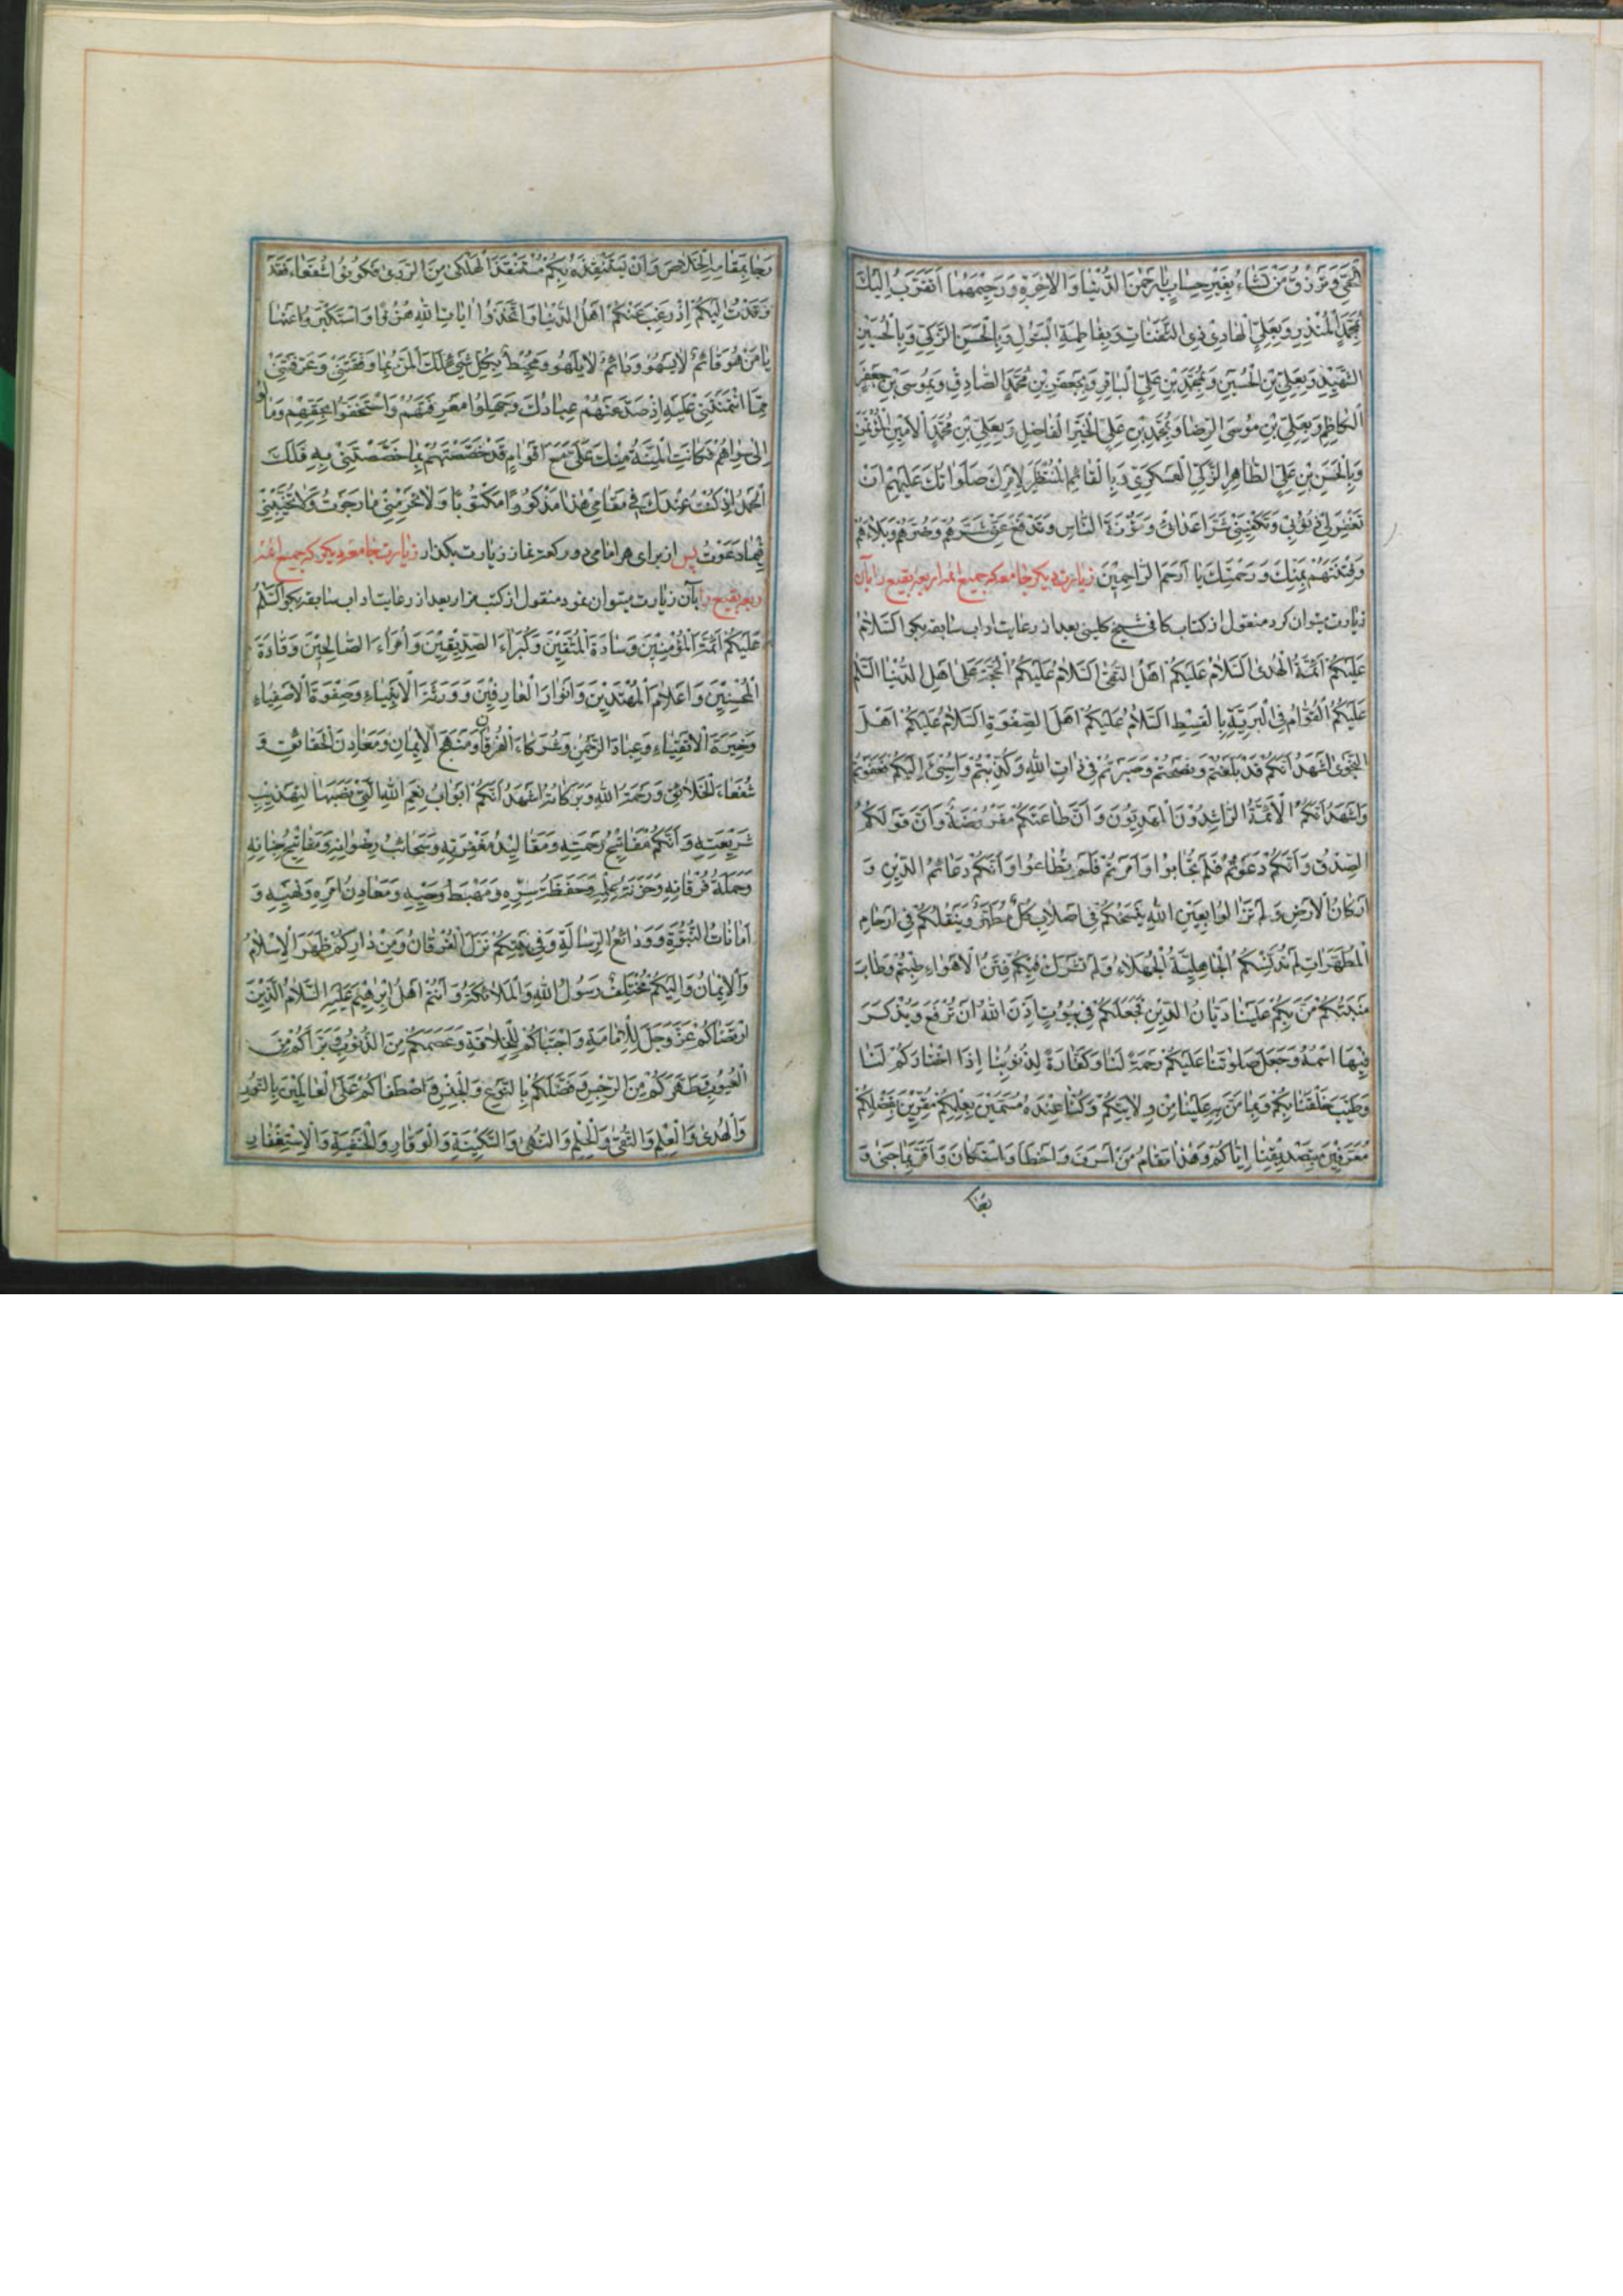 الْحَيِّ وَتَرْزُقُ مَنْ تَشَاءُ بِغَيْرِ حِسَابٍ يَا رَحْمٰنَ الدُّنْيَا وَالْاٰخِرَةِ وَرَحِيْمَهُمَا اَتَقَرَّبُ اِلَيْكَ
بِمُحَمَّدٍ الْمُنْذِرِ وَبِعَلِيٍّ الْهَادِيْ ذِي الثَّفَنَاتِ وَبِفَاطِمَةِ الْبَتُوْلِ وَبِالْحَسَنِ الزَّكِيِّ وَبِالْحُسَيْنِ
الشَّهِيْدِ وَبِعَلِيِّ بْنِ الْحُسَيْنِ وَبِمُحَمَّدِ بْنِ عَلِيٍّ الْبَاقِرِ وَبِجَعْفَرِ بْنِ مُحَمَّدٍ الصَّادِقِ وَبِمُوْسَى بْنِ جَعْفَرٍ
الْكَاظِمِ وَبِعَلِيِّ بْنِ مُوْسَى الرِّضَا وَبِمُحَمَّدِ بْنِ عَلِيٍّ الْخَيْرِ الْفَاضِلِ وَبِعَلِيِّ بْنِ مُحَمَّدٍ الْاَمِيْنِ الْمُؤْتَمَنِ
وَبِالْحَسَنِ بْنِ عَلِيٍّ الطَّاهِرِ الزَّكِيِّ الْعَسْكَرِيِّ وَبِالْقَائِمِ الْمُنْتَظَرِ لِاَمْرِكَ صَلَوَاتُكَ عَلَيْهِمْ اَنْ
تَغْفِرَ لِيْ ذُنُوْبِيْ وَتَكْفِيَنِيْ شَرَّ اَعْدَائِيْ وَمَؤُنَةَ النَّاسِ وَتَدْفَعَ عَنِّيْ شَرَّهُمْ وَضُرَّهُمْ وَبَلَاءَهُمْ
وَفِتْنَتَهُمْ بِمَنِّكَ وَرَحْمَتِكَ يَا اَرْحَمَ الرَّاحِمِيْنَ زیارت دیگر جامعه که جمیع ائمه اربعه بقیع را بآن
زیارت میتوان کرد منقول از کتاب کافی شیخ کلینی بعد از رعایت اداب سابقه بگو اَلسَّلَامُ
عَلَيْكُمْ اَئِمَّةَ الْهُدٰى اَلسَّلَامُ عَلَيْكُمْ اَهْلَ التَّقْوٰى اَلسَّلَامُ عَلَيْكُمُ الْحُجَّةَ عَلٰى اَهْلِ الدُّنْيَا اَلسَّلَامُ
عَلَيْكُمُ الْقُوَّامَ فِي الْبَرِيَّةِ بِالْقِسْطِ اَلسَّلَامُ عَلَيْكُمْ اَهْلَ الصَّفْوَةِ اَلسَّلَامُ عَلَيْكُمْ اَهْلَ
النَّجْوٰى اَشْهَدُ اَنَّكُمْ قَدْ بَلَّغْتُمْ وَنَصَحْتُمْ وَصَبَرْتُمْ فِيْ ذَاتِ اللهِ وَكُذِّبْتُمْ وَاُسِيْئَ اِلَيْكُمْ فَعَفَوْتُمْ
وَاَشْهَدُ اَنَّكُمُ الْاَئِمَّةُ الرَّاشِدُوْنَ الْمَهْدِيُّوْنَ وَاَنَّ طَاعَتَكُمْ مَفْرُوْضَةٌ وَاَنَّ قَوْلَكُمُ
الصِّدْقُ وَاَنَّكُمْ دَعَوْتُمْ فَلَمْ تُجَابُوْا وَاَمَرْتُمْ فَلَمْ تُطَاعُوْا وَاَنَّكُمْ دَعَائِمُ الدِّيْنِ وَ
اَرْكَانُ الْاَرْضِ وَلَمْ تَزَالُوْا بِعَيْنِ اللهِ يَنْسَخُكُمْ فِيْ اَصْلَابِ كُلِّ مُطَهَّرٍ وَيَنْقُلُكُمْ فِيْ اَرْحَامِ
الْمُطَهَّرَاتِ لَمْ تُدَنِّسْكُمُ الْجَاهِلِيَّةُ الْجَهْلَاءُ وَلَمْ تَشْرَكْ فِيْكُمْ فِتَنُ الْاَهْوَاءِ طِبْتُمْ وَطَابَ
مَنْبِتُكُمْ مَنَّ بِكُمْ عَلَيْنَا دَيَّانُ الدِّيْنِ فَجَعَلَكُمْ فِيْ بُيُوْتٍ اَذِنَ اللهُ اَنْ تُرْفَعَ وَيُذْكَرَ
فِيْهَا اسْمُهُ وَجَعَلَ صَلَوٰتَنَا عَلَيْكُمْ رَحْمَةً لَنَا وَكَفَّارَةً لِذُنُوْبِنَا اِذَا اخْتَارَكُمْ لَنَا
وَطَيَّبَ خَلْقَنَا بِكُمْ وَبِمَا مَنَّ بِهِ عَلَيْنَا مِنْ وِلَايَتِكُمْ وَكُنَّا عِنْدَهُ مُسَمَّيْنَ بِعِلْمِكُمْ مُقِرِّيْنَ بِفَضْلِكُمْ
مُعْتَرِفِيْنَ بِتَصْدِيْقِنَا اِيَّاكُمْ وَهٰذَا مَقَامُ مَنْ اَسْرَفَ وَاَخْطَاَ وَاسْتَكَانَ وَاَقَرَّ بِمَا جَنٰى وَ
رَجَا بِمَقَامِهِ الْخَلَاصَ وَاَنْ يَسْتَنْقِذَهُ بِكُمْ مُسْتَنْقِذُ الْهَلْكٰى مِنَ الرَّدٰى فَكُوْنُوْا شُفَعَاءَ فَقَدْ
وَفَدْتُ اِلَيْكُمْ اِذْ رَغِبَ عَنْكُمْ اَهْلُ الدُّنْيَا وَاتَّخَذُوْا اٰيَاتِ اللهِ هُزُوًا وَاسْتَكْبَرُوْا عَنْهَا
يَا مَنْ هُوَ قَائِمٌ لَا يَسْهُوْ وَدَائِمٌ لَا يَلْهُوْ وَمُحِيْطٌ بِكُلِّ شَيْءٍ لَكَ الْمَنُّ بِمَا وَفَّقْتَنِيْ وَعَرَّفْتَنِيْ
مِمَّا ائْتَمَنْتَنِيْ عَلَيْهِ اِذْ صَدَّ عَنْهُمْ عِبَادُكَ وَجَهِلُوْا مَعْرِفَتَهُمْ وَاسْتَخَفُّوْا بِحَقِّهِمْ وَمَالُوْا
اِلٰى سِوَاهُمْ فَكَانَتِ الْمِنَّةُ مِنْكَ عَلَيَّ مَعَ اَقْوَامٍ قَدْ خَصَصْتَهُمْ بِمَا خَصَصْتَنِيْ بِهِ فَلَكَ
الْحَمْدُ اِذْ كُنْتُ عِنْدَكَ فِيْ مَقَامِيْ هٰذَا مَذْكُوْرًا مَكْتُوْبًا وَلَا تَحْرِمْنِيْ مَا رَجَوْتُ وَلَا تُخَيِّبْنِيْ
فِيْمَا دَعَوْتُ پس از برای هر امامی دو رکعت نماز زیارت بگذار زیارت جامعه دیگر که جمیع ائمه
اربعه بقیع را بآن زیارت میتوان نمود منقول از کتب مزار بعد از رعایت اداب سابقه بگو اَلسَّلَامُ
عَلَيْكُمْ اَئِمَّةَ الْمُؤْمِنِيْنَ وَسَادَةَ الْمُتَّقِيْنَ وَكُبَرَاءَ الصِّدِّيْقِيْنَ وَاُمَرَاءَ الصَّالِحِيْنَ وَقَادَةَ
الْمُحْسِنِيْنَ وَاَعْلَامَ الْمُهْتَدِيْنَ وَاَنْوَارَ الْعَارِفِيْنَ وَوَرَثَةَ الْاَنْبِيَاءِ وَصَفْوَةَ الْاَصْفِيَاءِ
وَخِيَرَةَ الْاَتْقِيَاءِ وَعِبَادَ الرَّحْمٰنِ وَشُرَكَاءَ الْفُرْقَانِ وَمَنْهَجَ الْاِيْمَانِ وَمَعَادِنَ الْحَقَائِقِ وَ
شُفَعَاءَ الْخَلَائِقِ وَرَحْمَةُ اللهِ وَبَرَكَاتُهُ اَشْهَدُ اَنَّكُمْ اَبْوَابُ نِعَمِ اللهِ الَّتِيْ
شَرِيْعَتِهِ وَاَنَّكُمْ مَفَاتِيْحُ رَحْمَتِهِ وَمَقَالِيْدُ مَغْفِرَتِهِ وَسَحَائِبُ رِضْوَانِهِ وَمَفَاتِيْحُ جِنَانِهِ
وَحَمَلَةُ فُرْقَانِهِ وَخَزَنَةُ عِلْمِهِ وَحَفَظَةُ سِرِّهِ وَمَهْبِطُ وَحْيِهِ وَمَعَادِنُ اَمْرِهِ وَنَهْيِهِ وَ
اَمَانَاتُ النُّبُوَّةِ وَوَدَائِعُ الرِّسَالَةِ وَفِيْ بَيْتِكُمْ نَزَلَ الْفُرْقَانُ وَمِنْ دَارِكُمْ ظَهَرَ الْاِسْلَامُ
وَالْاِيْمَانُ وَاِلَيْكُمْ مُخْتَلَفُ رَسُوْلِ اللهِ وَالْمَلَائِكَةِ وَاَنْتُمْ اَهْلُ اِبْرٰهِيْمَ عَلَيْهِ السَّلَامُ الَّذِيْنَ
ارْتَضَاكُمْ عَزَّ وَجَلَّ لِلْاِمَامَةِ وَاجْتَبَاكُمْ لِلْخِلَافَةِ وَعَصَمَكُمْ مِنَ الذُّنُوْبِ وَبَرَّاَكُمْ مِنَ
الْعُيُوْبِ وَطَهَّرَكُمْ مِنَ الرِّجْسِ وَفَضَّلَكُمْ بِالنَّوْعِ وَالْجِنْسِ وَاصْطَفَاكُمْ عَلَى الْعَالَمِيْنَ بِالنُّوْرِ
وَالْهُدٰى وَالْعِلْمِ وَالتُّقٰى وَالْحِلْمِ وَالنُّهٰى وَالسَّكِيْنَةِ وَالْوَقَارِ وَالْخَشْيَةِ وَالْاِسْتِغْفَارِ